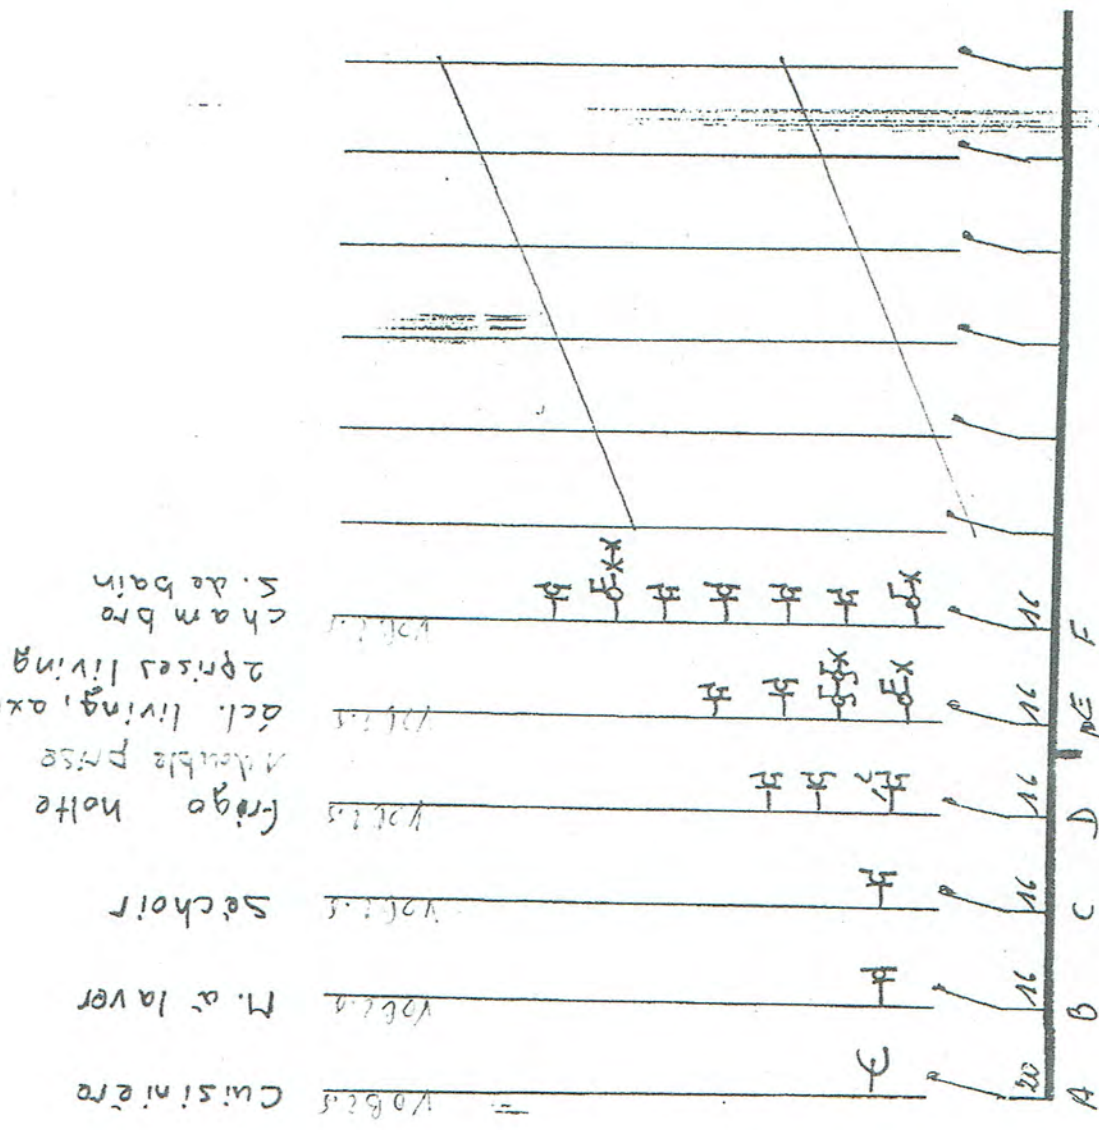 A 20 VOB 2.5 Cuisinière
B 16 VOB 2.5 M. à laver
C 16 VOB 2.5 séchoir
D 16 VOB 2.5 frigo hotte
1 double prise
E 16 VOB 2.5 écl. living,
2 prises living
F 16 VOB 2.5 chambre
S. de bain